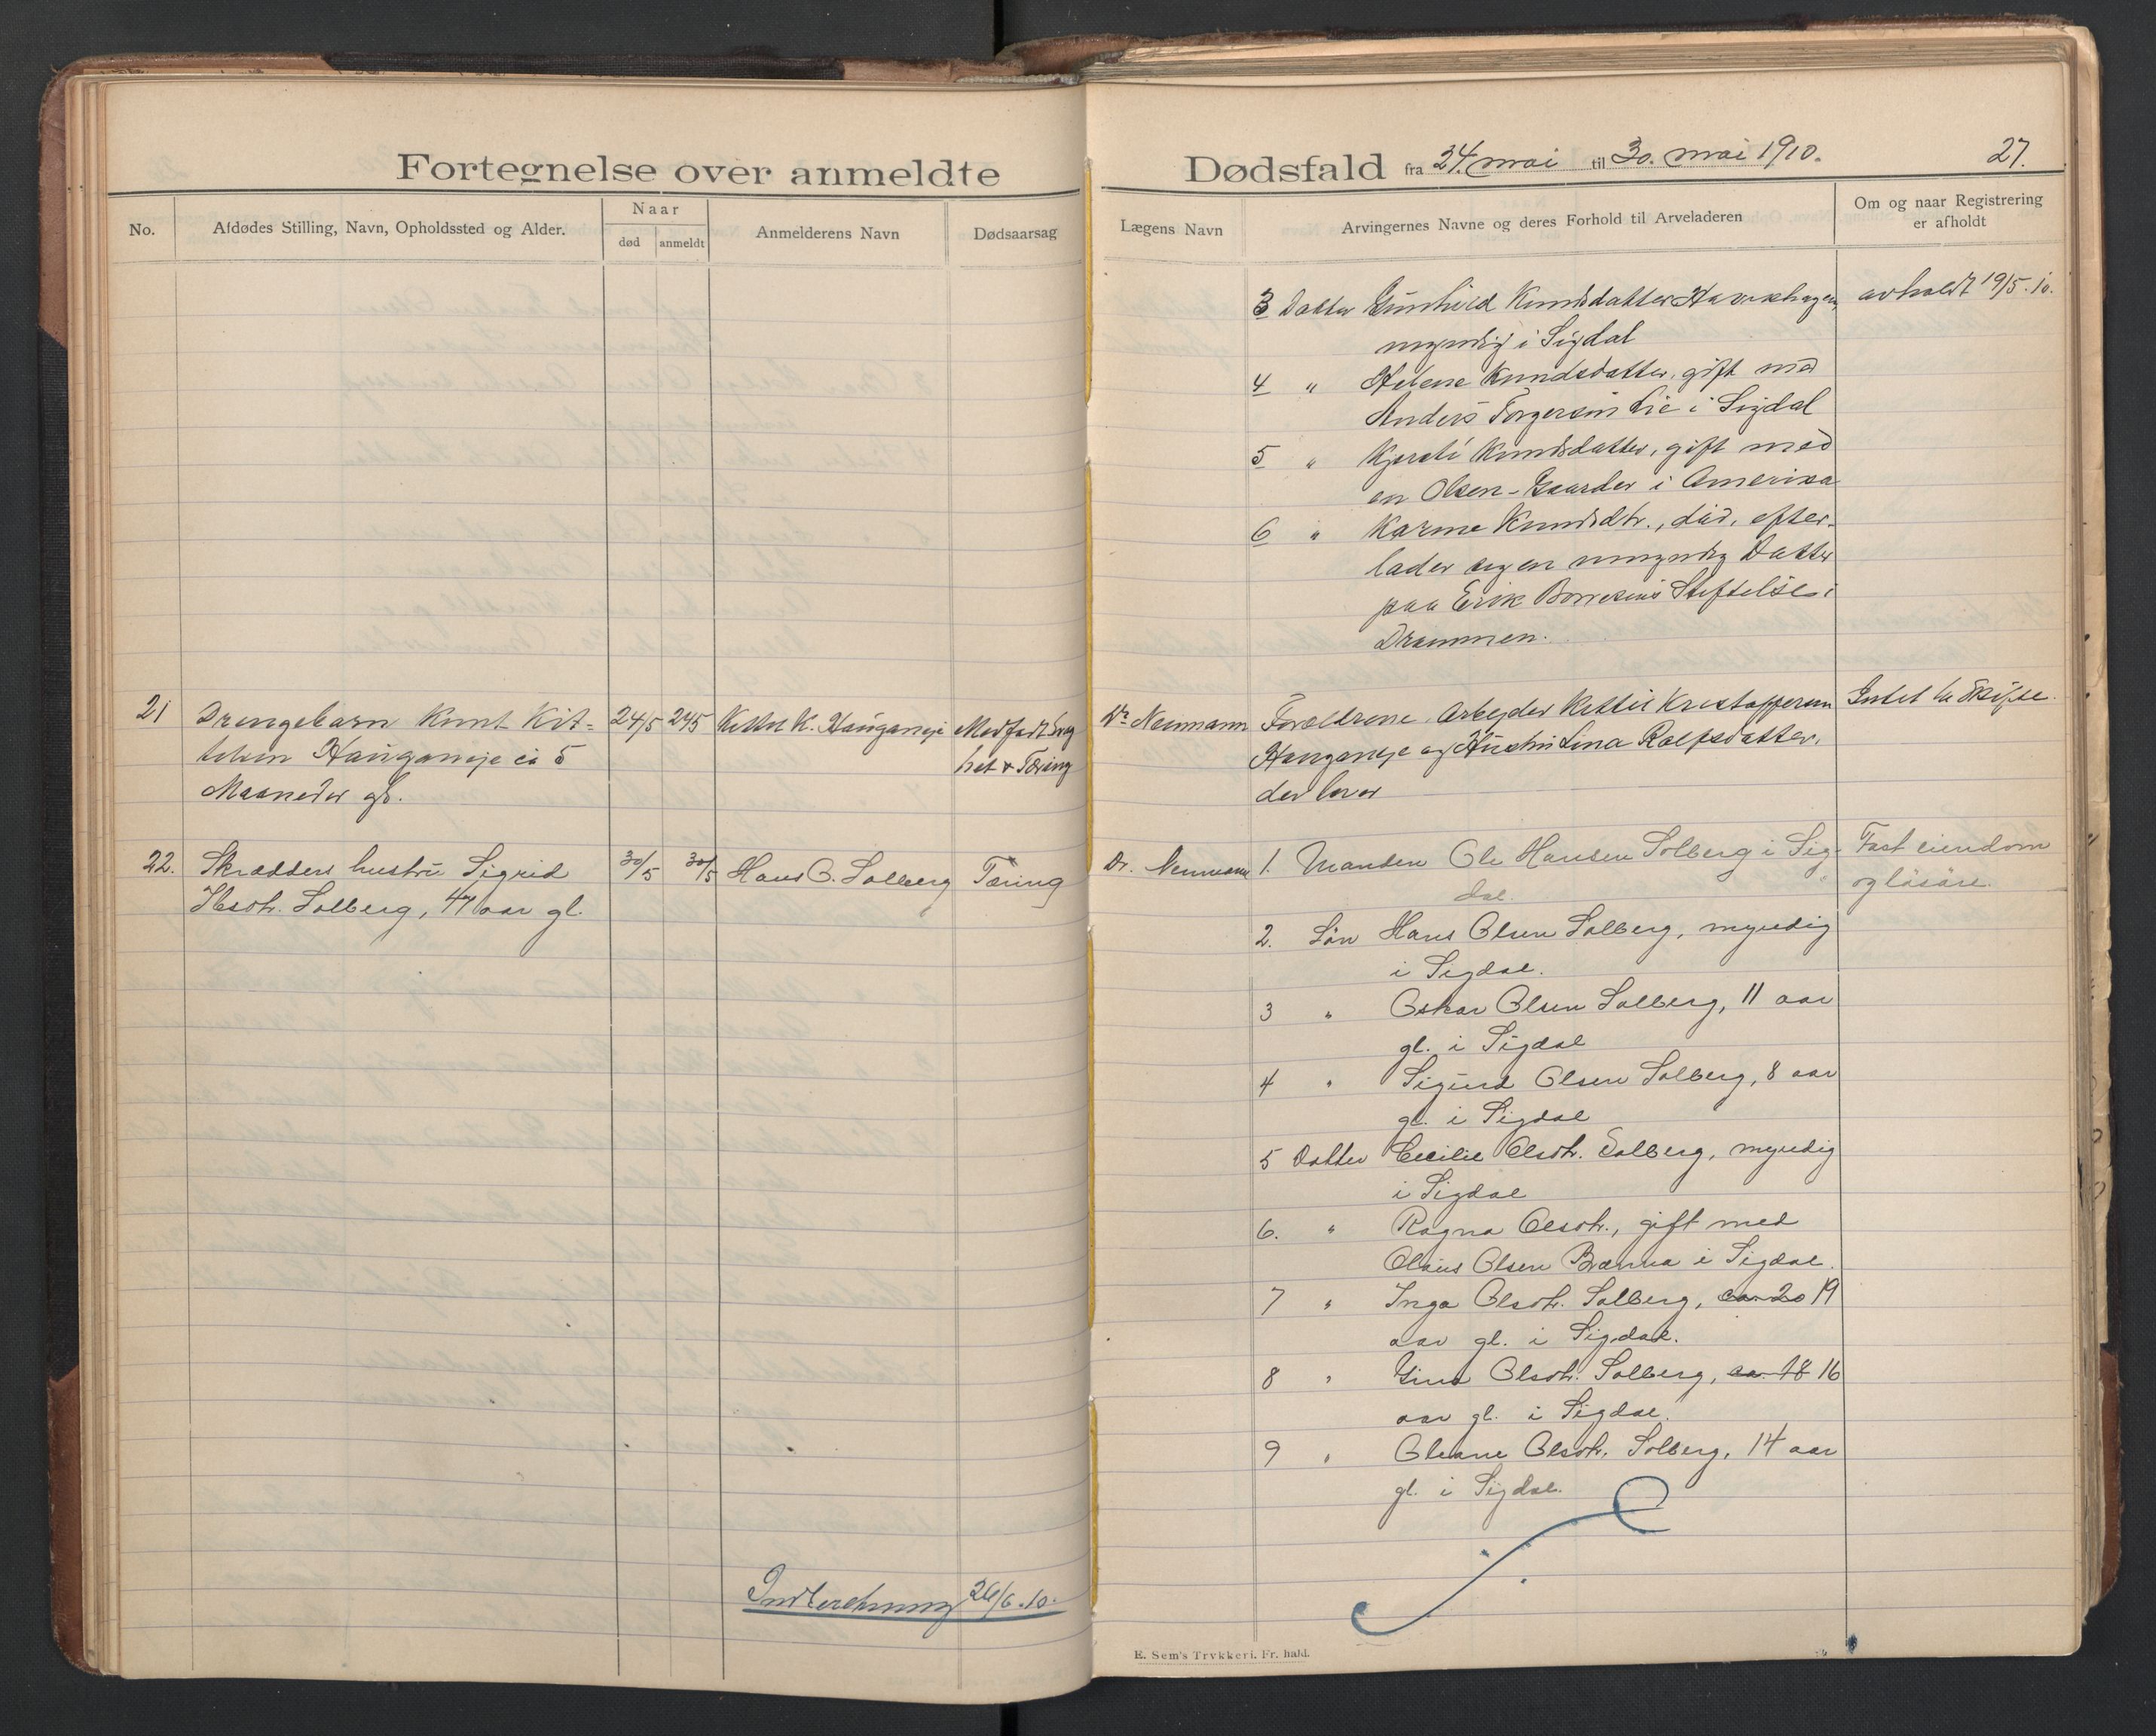 Fortegnelse over anmeldte
No.
Afdødes Stilling, Navn, Opholdssted og Alder.
Naar
død
anmeldt
Anmelderens Navn
Dødsaarsag
21 Drengebarn Knut Kit= 24/5 24/5 Kittil K. Hauganeje Medfødt Svag
telsen Hauganeje ca 5 het & Tæring
Maaneder gl.
22. Skrædders hustru Sigrid 30/5 30/5 Hans O. Solberg Tæring
Solberg, 47 aar gl.
Indberetning 26/6.10.
Dødsfald fra 24. mai til 30. mai 1910. 27.
Lægens Navn
Arvingernes Navne og deres Forhold til Arveladeren
Om og naar Registrering
er afholdt
3 Datter Gunhild Knudsdatter Haverhagen, avholdt 19/5.10.
myndig i Sigdal
4 " Helene Knudsdatter, gift med
Anders Torgersen Lie i Sigdal
5 " Kjersti Knudsdatter, gift med
en Olsen-Gaarder i Amerika
6 " Karine Knudsdtr., død, efter-
lader sig en umyndig Datter
paa Erik Børresens Stiftelse i
Drammen.
Dr Neumann Forældrene, Arbejder Kittil Kristoffersen Intet til Skifte.
Hauganeje og Hustru Lina Rolfsdatter,
der lever
Dr. Neumann 1. Manden Ole Hansen Solberg i Sig- Fast eiendom
dal. og løsøre.
2. Søn Hans Olsen Solberg, myndig
i Sigdal.
3 " Oskar Olsen Solberg, 11 aar
gl. i Sigdal
4 " Sigurd Olsen Solberg, 8 aar
gl. i Sigdal
5 Datter Cecilie Olsdtr. Solberg, myndig
i Sigdal
6. " Ragna Olsdtr., gift med
Olaus Olsen Brænna i Sigdal.
7 " Inga Olsdtr. Solberg, ca. 20 19
aar gl. i Sigdal.
8 " Gina Olsdtr. Solberg, ca. 18 16
aar gl. i Sigdal.
9 " Oleane Olsdtr. Solberg, 14 aar
gl. i Sigdal.
E. Sem's Trykkeri, Fr. hald.